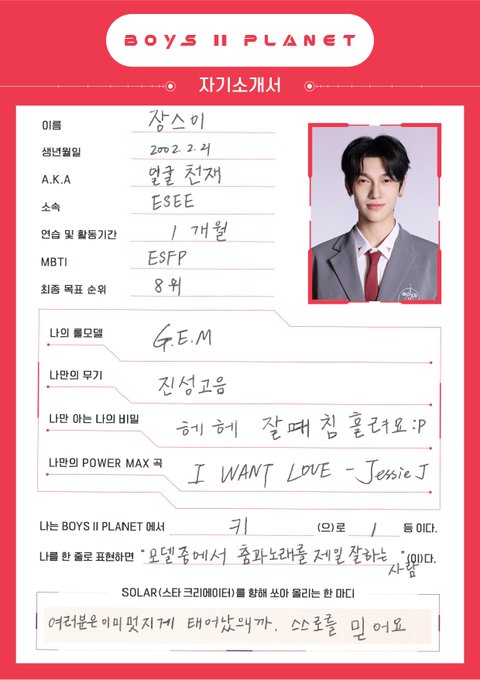 BOYS II PLANET
자기소개서
이름 장스이
생년월일 2002. 2. 21
A.K.A 얼굴 천재
소속 ESEE
연습 및 활동기간 1 개월
MBTI ESFP
최종 목표 순위 8위
나의 롤모델 G.E.M
나만의 무기 진성고음
나만 아는 나의 비밀 헤헤 잘때 침 흘려요:P
나만의 POWER MAX 곡 I WANT LOVE - Jessie J
나는 BOYS II PLANET 에서 키 (으)로 1 등 이다.
나를 한 줄로 표현하면 " 모델중에서 춤과노래를 제일 잘하는 사람 " (이)다.
SOLAR(스타 크리에이터)를 향해 쏘아 올리는 한 마디
여러분은이미멋지게 태어났으니까, 스스로를 믿어요